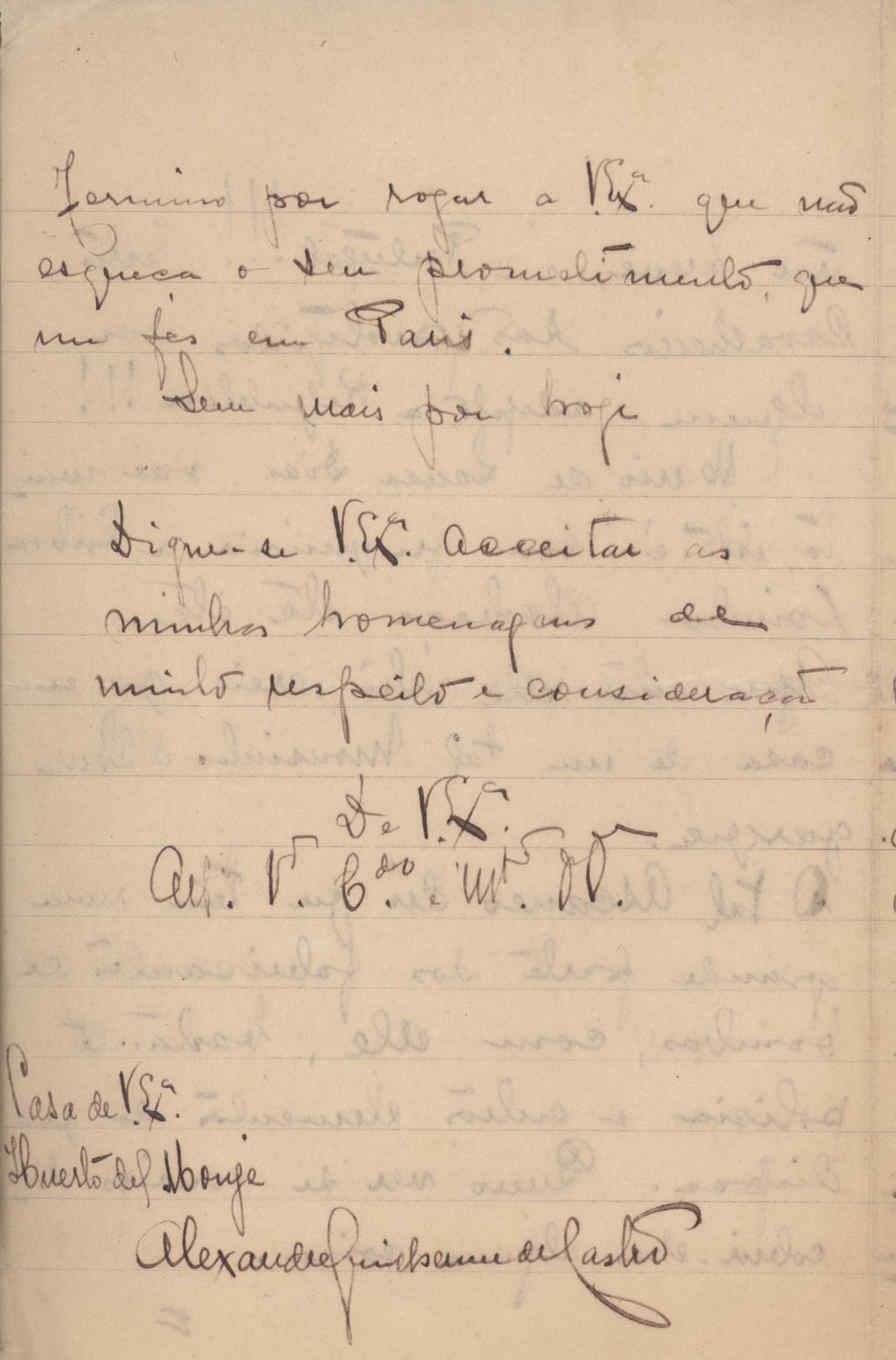 Termino por rogar a V. Exª. que não
esqueca o seu promettimento, que
me fês em Paris.
Sem mais por hoje
Digne-se V. Exª. acceitar as
minhas homenagens de
muito respeito e consideração
De V. Exª.
Att. V. C.do e Mt.
Casa de V. Exª.
Huerto del Monje
Alexandre de Castro